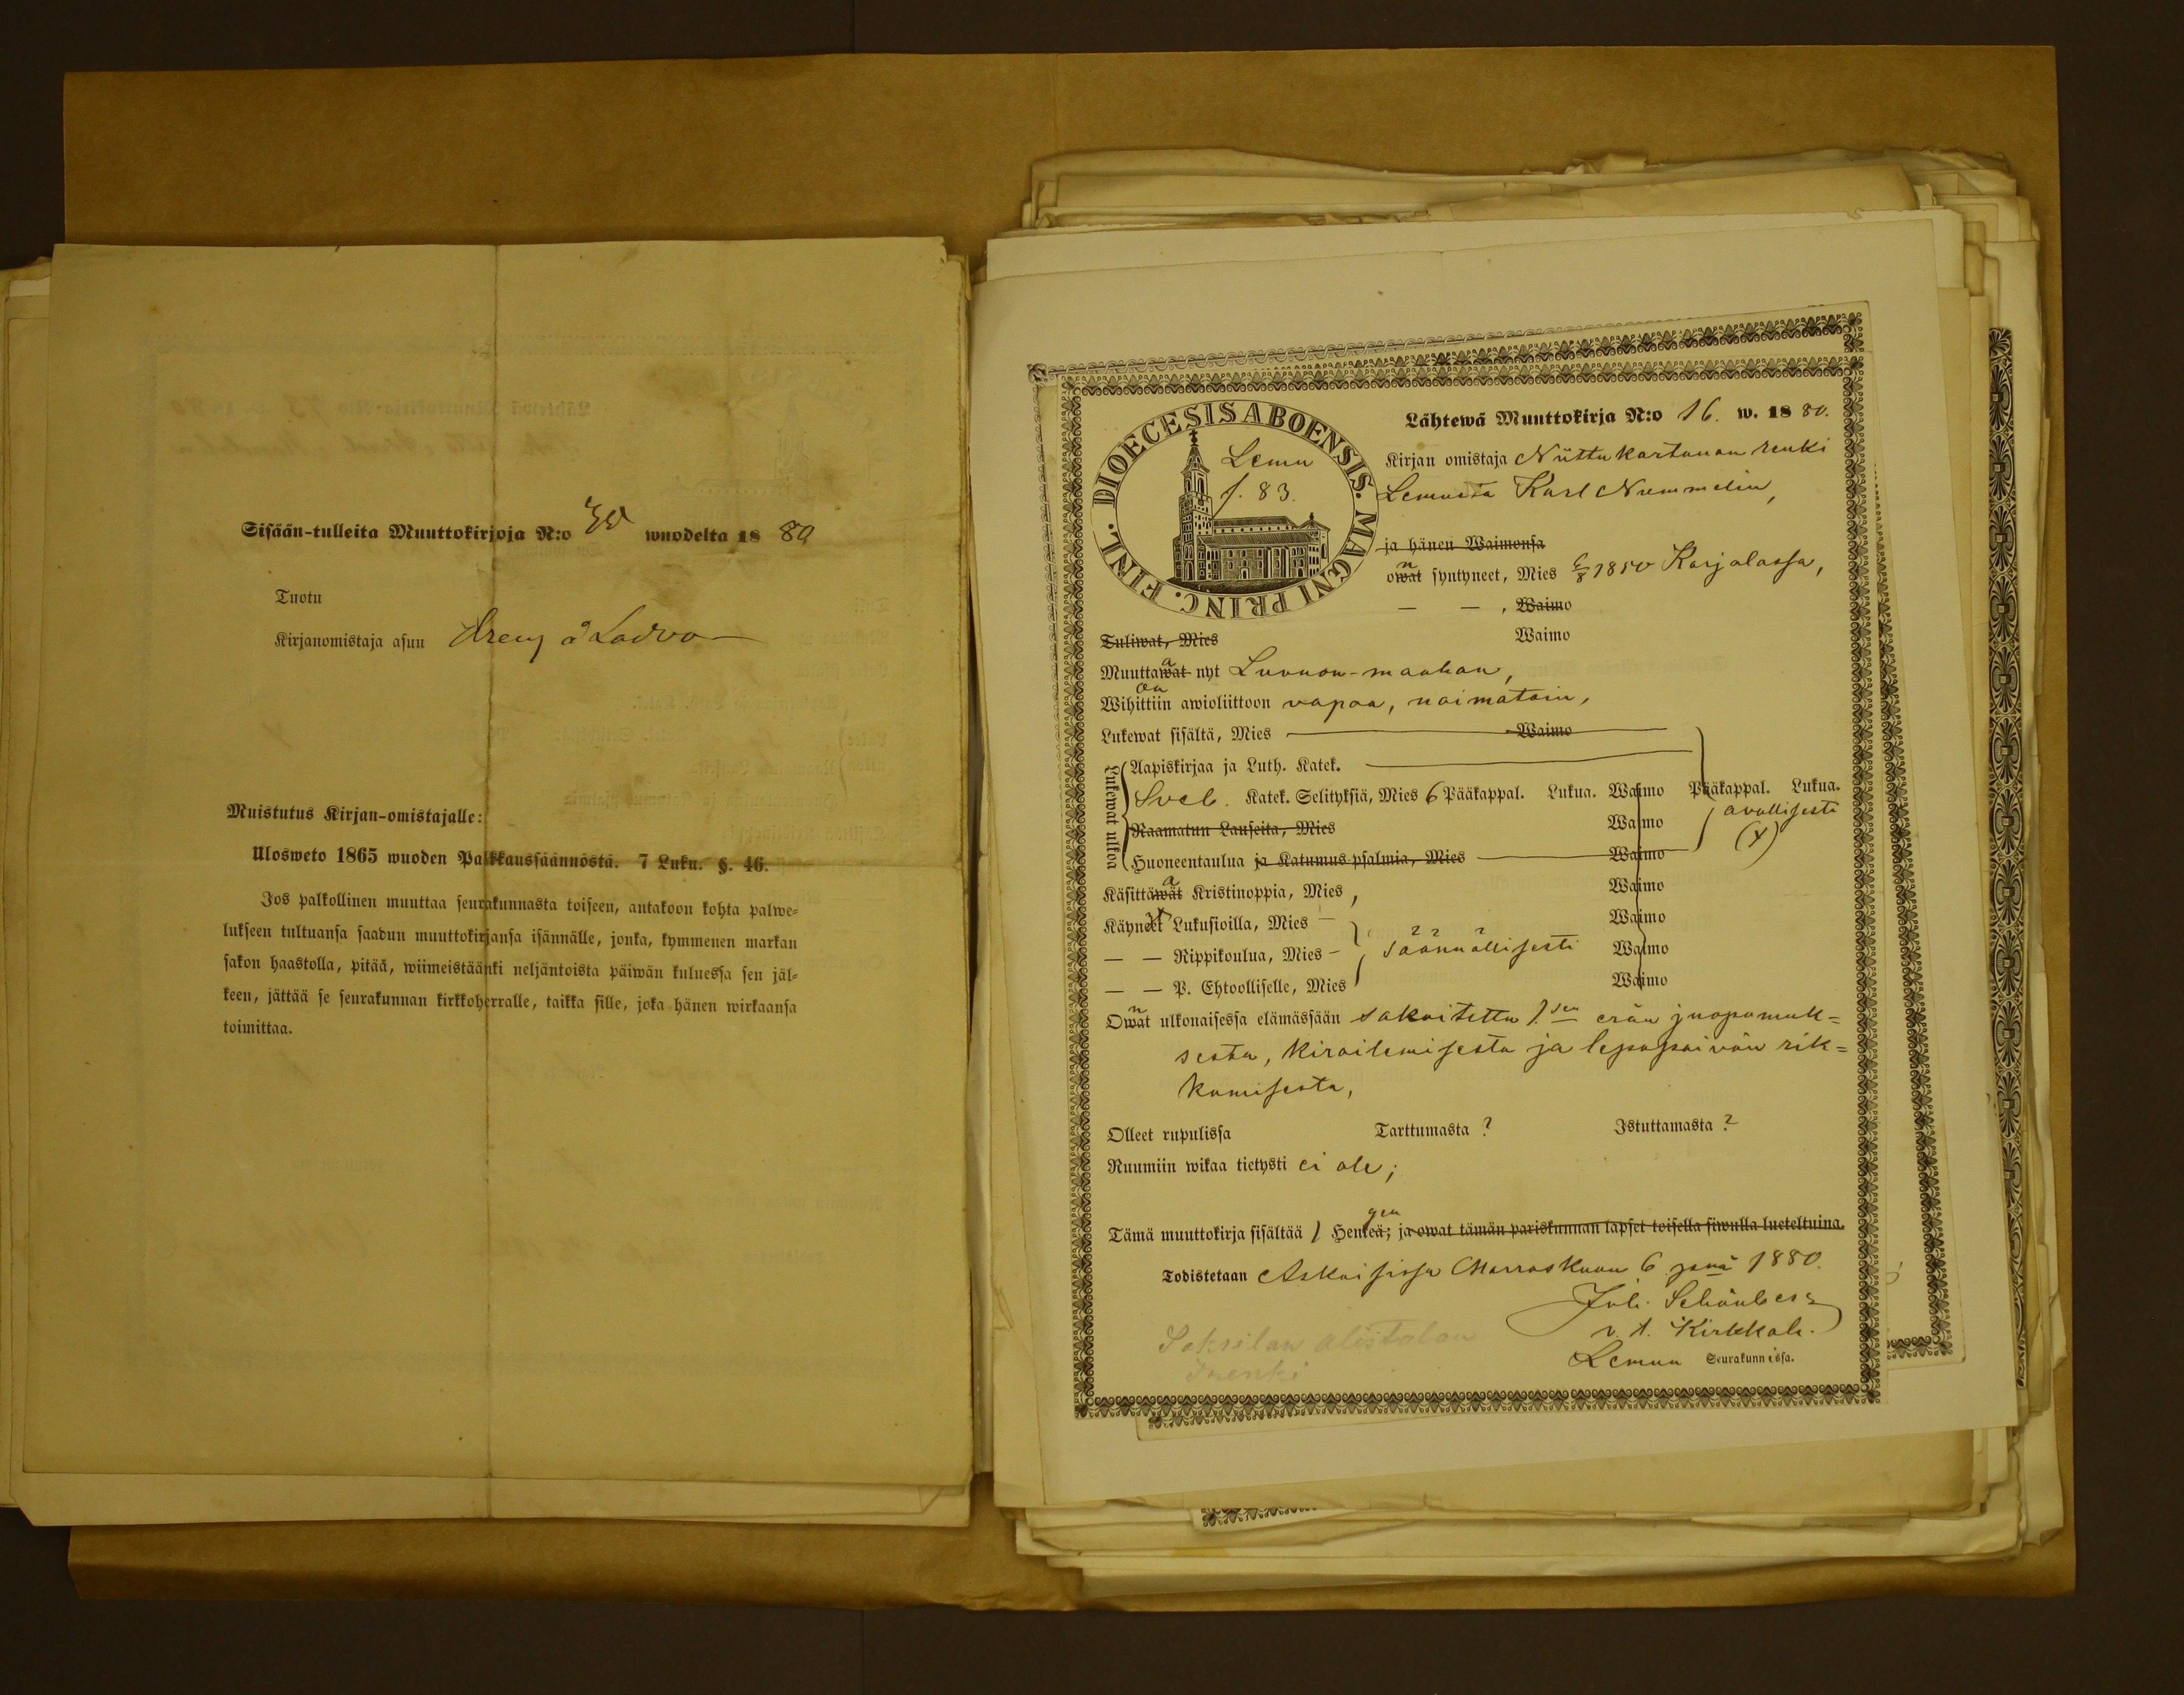 Sisään-tulleita Muuttokirjoja N:o wuodelta 18 80
Tuotu
Kirjanomistaja asuu Dreng å Ladvo
Muistutus Kirjan-omistajalle:
Ulosweto 1865 wuoden Palkkaussäännöstä. 7 Luku. §. 46.
Jos palkollinen muuttaa seurakunnasta toiseen, antakoon kohta palwe=
lukseen tultuansa saadun muuttokirjansa isännälle, jonka, kymmenen markan
sakon haastolla, pitää, wiimeistäänki neljäntoista päiwän kuluessa sen jäl=
keen, jättää se seurakunnan kirkkoherralle, taikka sille, joka hänen wirkaansa
toimittaa.
DIOECESIS ABOENSIS. MAGNI PRINC. FINL.
Lemu
f. 83.
Lähtewä Muuttokirja N:o 16. w. 18 80.
Kirjan omistaja Niittukartanon renki
Lemusta Karl Nummelin,
ja hänen Waimonsa
owat n syntyneet, Mies 1850 Karjalassa,
— — , Waimo
Tuliwat, Mies Waimo
Muuttawat a nyt Luvuon-maahan,
Wihittiin on awioliittoon vapaa, naimatoin,
Lukewat sisältä, Mies Waimo
Lukewat ulkoa
Aapiskirjaa ja Luth. Katek.
Sveb. Katek. Selityksiä, Mies 6 Pääkappal. Lukua. Waimo Pääkappal. Lukua.
avullisesti
Raamatun Lauseita, Mies Waimo
Huoneentaulua ja Katumus-psalmia, Mies Waimo
Käsittäwät ä Kristinoppia, Mies, Waimo
Käyneet Lukusioilla, Mies — Waimo
— — Rippikoulua, Mies — säännöllisesti Waimo
— — P. Ehtoolliselle, Mies Waimo
Owat n ulkonaisessa elämässään sakoitettu 1. sen erän juopumuk=
sesta, kiroilemisesta ja lepopäivän rik=
komisesta,
Olleet rupulissa Tarttumasta ? Istuttamasta ?
Ruumiin wikaa tietysti ei ole;
Tämä muuttokirja sisältää 1 Henkeä; gen ja owat tämän pariskunnan lapset toisella siwulla lueteltuina.
Todistetaan Askaisissa Marraskuun 6 pnä 1880.
Joh. Schönberg
v. t. Kirkkoh.
Lemun Seurakunnissa.
alistalon
renki